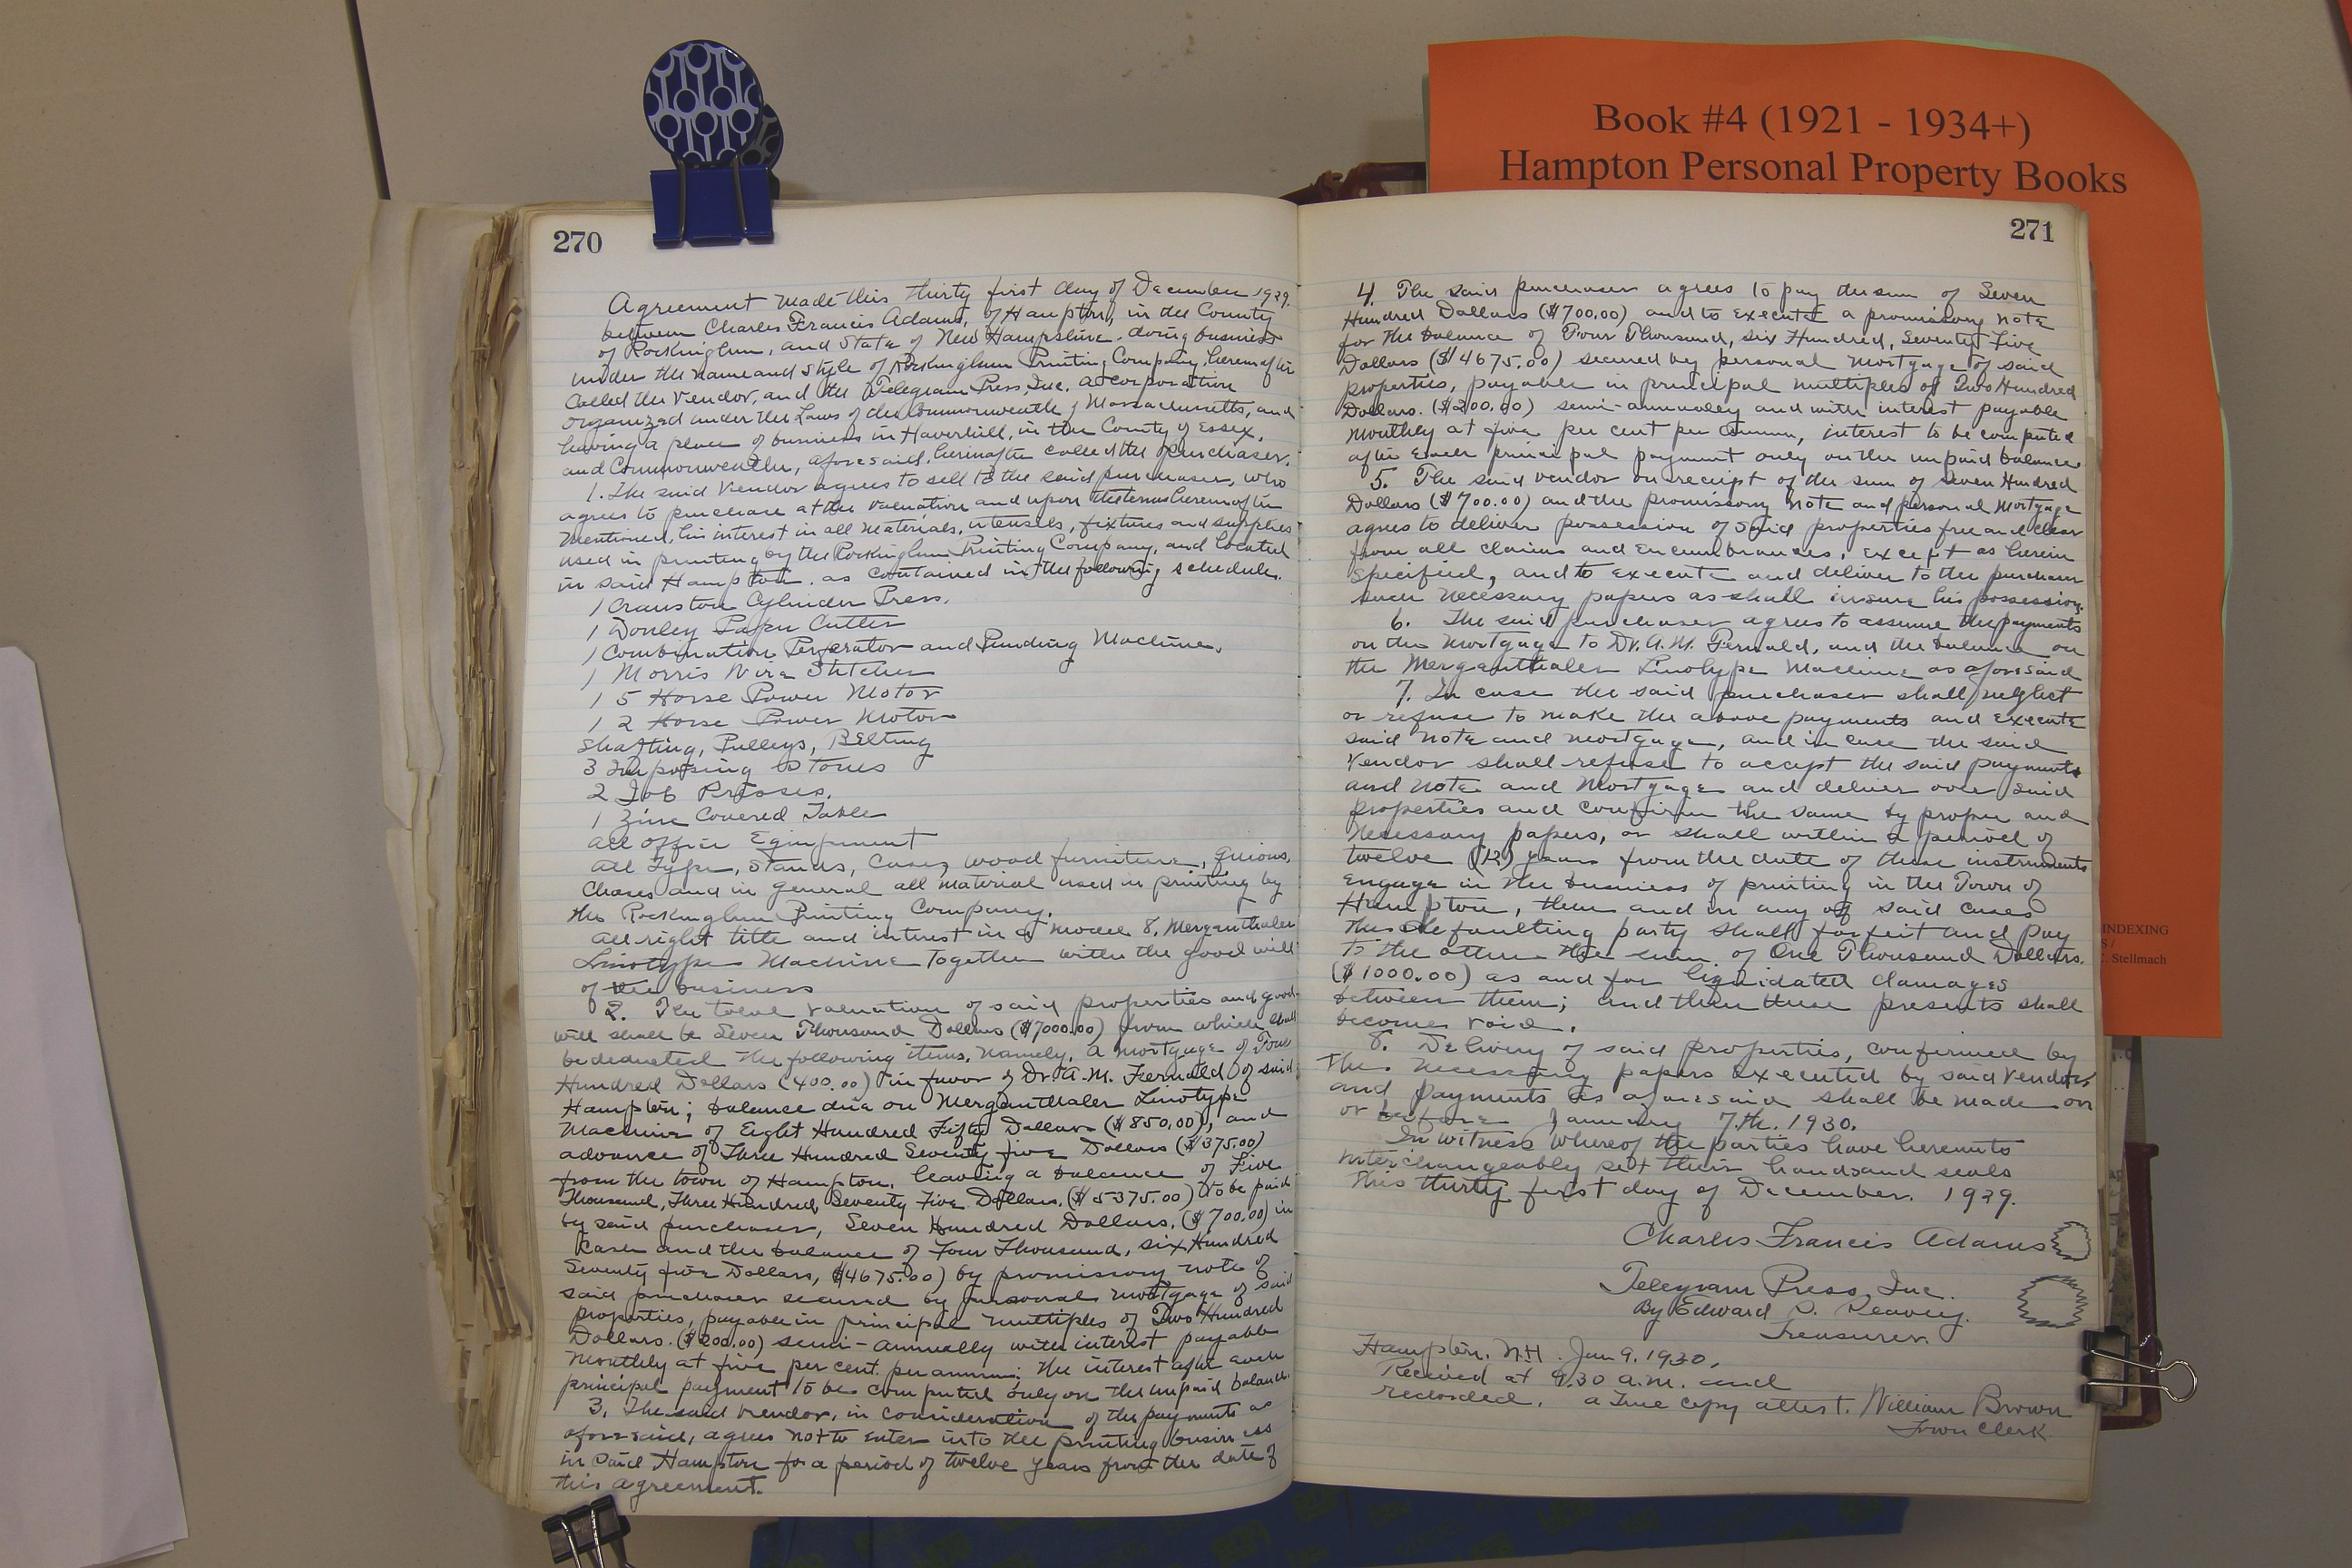 Book #4 (1921 - 1934+)
Hampton Personal Property Books
270
Agreement made this thirty first day of December 1929.
between Charles Francis Adams, of Hampton, in the County
of Rockingham, and State of New Hampshire. doing business
under the name and style of Rockingham Printing Company, hereinafter
called the Vendor, and the Telegram Press, Inc. a corporation
organized under the Laws of the Commonwealth of Massachusetts, and
having a place of business in Haverhill, in the County of Essex,
and Commonwealth, aforesaid, hereinafter called the purchaser.
1. The said Vendor agrees to sell to the said purchaser, who
agrees to purchase at the valuation and upon the terms hereinafter
mentioned, his interest in all materials, utensils, fixtures and supplies
used in printing by the Rockingham Printing Company, and located
in said Hampton. as contained in the following schedule.
1 Cranston Cylinder Press.
1 Donley Paper Cutter
1 Combination Perforator and Punding Machine.
1 Morris Wire Stitcher
1 5 Horse Power Motor
1 2 Horse Power Motor
Shafting, Pulleys, Belting
3 Imposing Stones
2 Job Presses.
1 Zinc Covered Table
all office Equipment
all Type, Stands, Cases, wood furniture, Quions,
Chases, and in general all material used in printing by
the Rockingham Printing Company.
all right title and interest in a model 8. Merganthaler
Linotype Machine Together with the good will
of the business
2. The total valuation of said properties and good
will shall be Seven Thousand Dollars ($7000.00) from which shall
be deducted the following items, namely, a mortgage of Four
Hundred Dollars (400.00) in favor of Dr. A. M. Fernald of said
Hampton; balance due on Merganthaler Linotype
Machine of Eight Hundred Fifty Dollars ($850.00), and
advance of Three Hundred Seventy five Dollars ($375.00)
from the town of Hampton, leaving a balance of Five
Thousand, Three Hundred, Seventy Five Dollars, ($5375.00) to be paid
by said purchaser, Seven Hundred Dollars, ($700.00) in
Cash and the balance of Four Thousand, six Hundred
Seventy five Dollars, $4675.00) by promissory note of
said purchaser secured by personal mortgage of said
properties, payable in principal multiples of Two Hundred
Dollars. ($200.00) semi-annually with interest payable
monthly at five per cent. per annum; the interest after each
principal payment to be computed only on the unpaid balance.
3. The said vendor, in consideration of the payments as
aforesaid, agrees not to enter into the printing business
in said Hampton for a period of twelve years from the date of
this agreement.
271
4. The said purchaser agrees to pay the sum of Seven
Hundred Dollars ($700.00) and to execute a promissory note
for the balance of Four Thousand, six Hundred, Seventy Five
Dollars ($4675.00) secured by personal mortgage of said
properties, payable in principal multiples of Two Hundred
Dollars. ($200.00) semi-annually and with interest payable
monthly at five per cent per annum, interest to be computed
after each principal payment only on the unpaid balance.
5. The said vendor on receipt of the sum of Seven Hundred
Dollars ($700.00) and the promissory note and personal Mortgage
agrees to deliver possession of said properties free and clear
from all claims and encumbrances, except as herein
specified, and to execute and deliver to the purchaser
such necessary papers as shall insure his possession.
6. The said purchaser agrees to assume the payments
on the mortgage to Dr. A. M. Fernald, and the balance on
the Merganthaler Linotype Machine as aforesaid
7. In case the said purchaser shall neglect
or refuse to make the above payments and execute
said note and mortgage, and in case the said
Vendor shall refuse to accept the said payments
and note and mortgage and deliver over said
properties and confirm the same by proper and
necessary papers, or shall within a period of
twelve (12) years from the date of these instruments
engage in the business of printing in the Town of
Hampton, then and in any of said cases
the defaulting party shall forfeit and pay
to the other the sum of One Thousand Dollars.
($1000.00) as and for liquidated damages
between them; and then these presents shall
become void.
8. Delivery of said properties, confirmed by
the necessary papers executed by said Vendor
and payments as aforesaid shall be made on
or before January 7.th. 1930.
In witness whereof the parties have hereunto
interchangeably set their hands and seals
this thirty first day of December. 1929.
Charles Francis Adams
Telegram Press, Inc.
By Edward S. Peavey.
Treasurer.
Hampton, N.H. Jan 9. 1930.
Received at 9.30 a.m. and
recorded. a true copy attest. William Brown
Town Clerk.
INDEXING
Stellmach